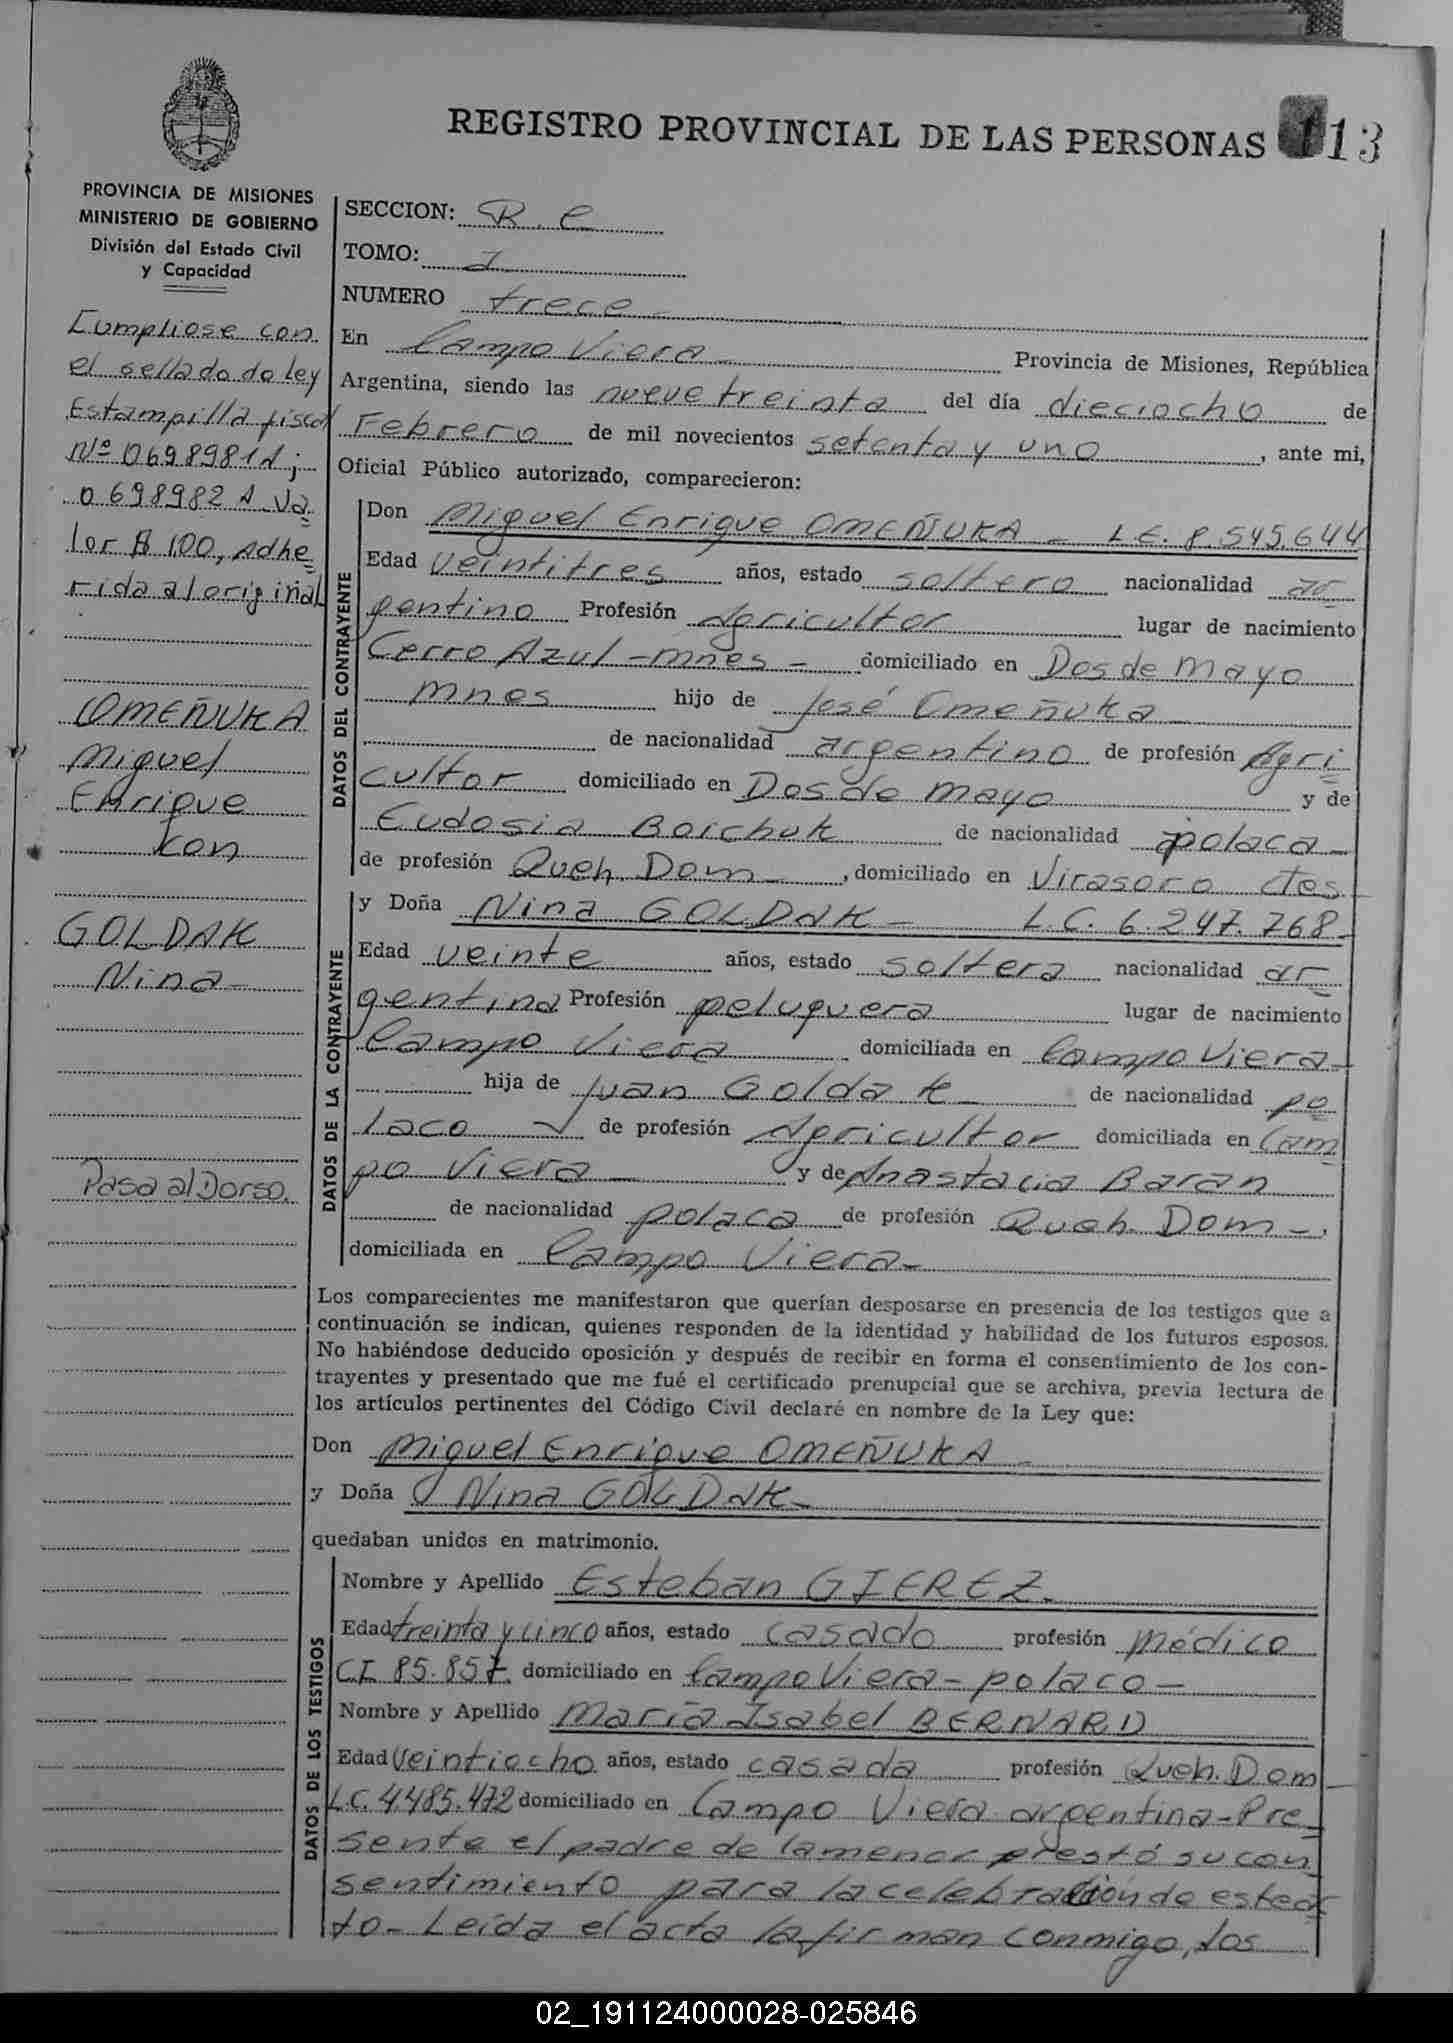 REGISTRO PROVINCIAL DE LAS PERSONAS 113
PROVINCIA DE MISIONES
MINISTERIO DE GOBIERNO
División del Estado Civil
y Capacidad
Cumpliose con
el sellado de ley
Estampilla fiscal
Nº 0698981A;
0698982 A Va
lor $ 100, Adhe
rida al original
OMEÑUKA
Miguel
Enrique
con
GOLDAK
Nina
Pasa al Dorso.
SECCION: R. C
TOMO: I
NUMERO trece
En Campo Viera Provincia de Misiones, República
Argentina, siendo las nueve treinta del día dieciocho de
Febrero de mil novecientos setenta y uno, ante mi,
Oficial Público autorizado, comparecieron:
DATOS DEL CONTRAYENTE
Don Miguel Enrique OMEÑUKA - L.E. 8.545.644
Edad veintitres años, estado soltero nacionalidad ar
gentino Profesión Agricultor lugar de nacimiento
Cerro Azul - mnes - domiciliado en Dos de Mayo
mnes hijo de José Omeñuka
de nacionalidad argentino de profesión Agri
cultor domiciliado en Dos de Mayo y de
Eudosia Boichuk de nacionalidad polaca
de profesión Queh. Dom, domiciliado en Virasoro Ctes
DATOS DE LA CONTRAYENTE
y Doña Nina GOLDAK - L.C. 6.247.768
Edad veinte años, estado soltera nacionalidad ar
gentina Profesión peluquera lugar de nacimiento
Campo Viera domiciliada en Campo Viera
hija de Juan Goldak de nacionalidad po
laco de profesión Agricultor domiciliada en Cam
po Viera y de Anastacia Baran
de nacionalidad polaca de profesión Queh. Dom -.
domiciliada en Campo Viera
Los comparecientes me manifestaron que querían desposarse en presencia de los testigos que a
continuación se indican, quienes responden de la identidad y habilidad de los futuros esposos.
No habiéndose deducido oposición y después de recibir en forma el consentimiento de los con-
trayentes y presentado que me fué el certificado prenupcial que se archiva, previa lectura de
los artículos pertinentes del Código Civil declaré en nombre de la Ley que:
Don Miguel Enrique OMEÑUKA
y Doña Nina GOLDAK
quedaban unidos en matrimonio.
DATOS DE LOS TESTIGOS
Nombre y Apellido Esteban GIEREZ.
Edad treinta y cinco años, estado casado profesión Médico
CI 85.857 domiciliado en Campo Viera - polaco -
Nombre y Apellido María Isabel BERNARD
Edad veintiocho años, estado casada profesión Queh. Dom
L.C. 4.485.472 domiciliado en Campo Viera argentina - Pre
sente el padre de la menor prestó su con
sentimiento para la celebración de este ac
to - Leída el acta la firman conmigo, los
02_191124000028-025846